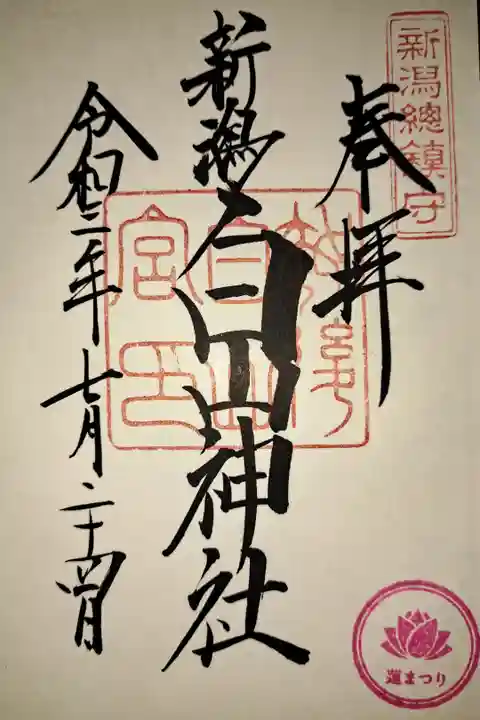 新潟總鎮守
奉拝
新潟白山神社
令和二年七月二十四日
蓮まつり